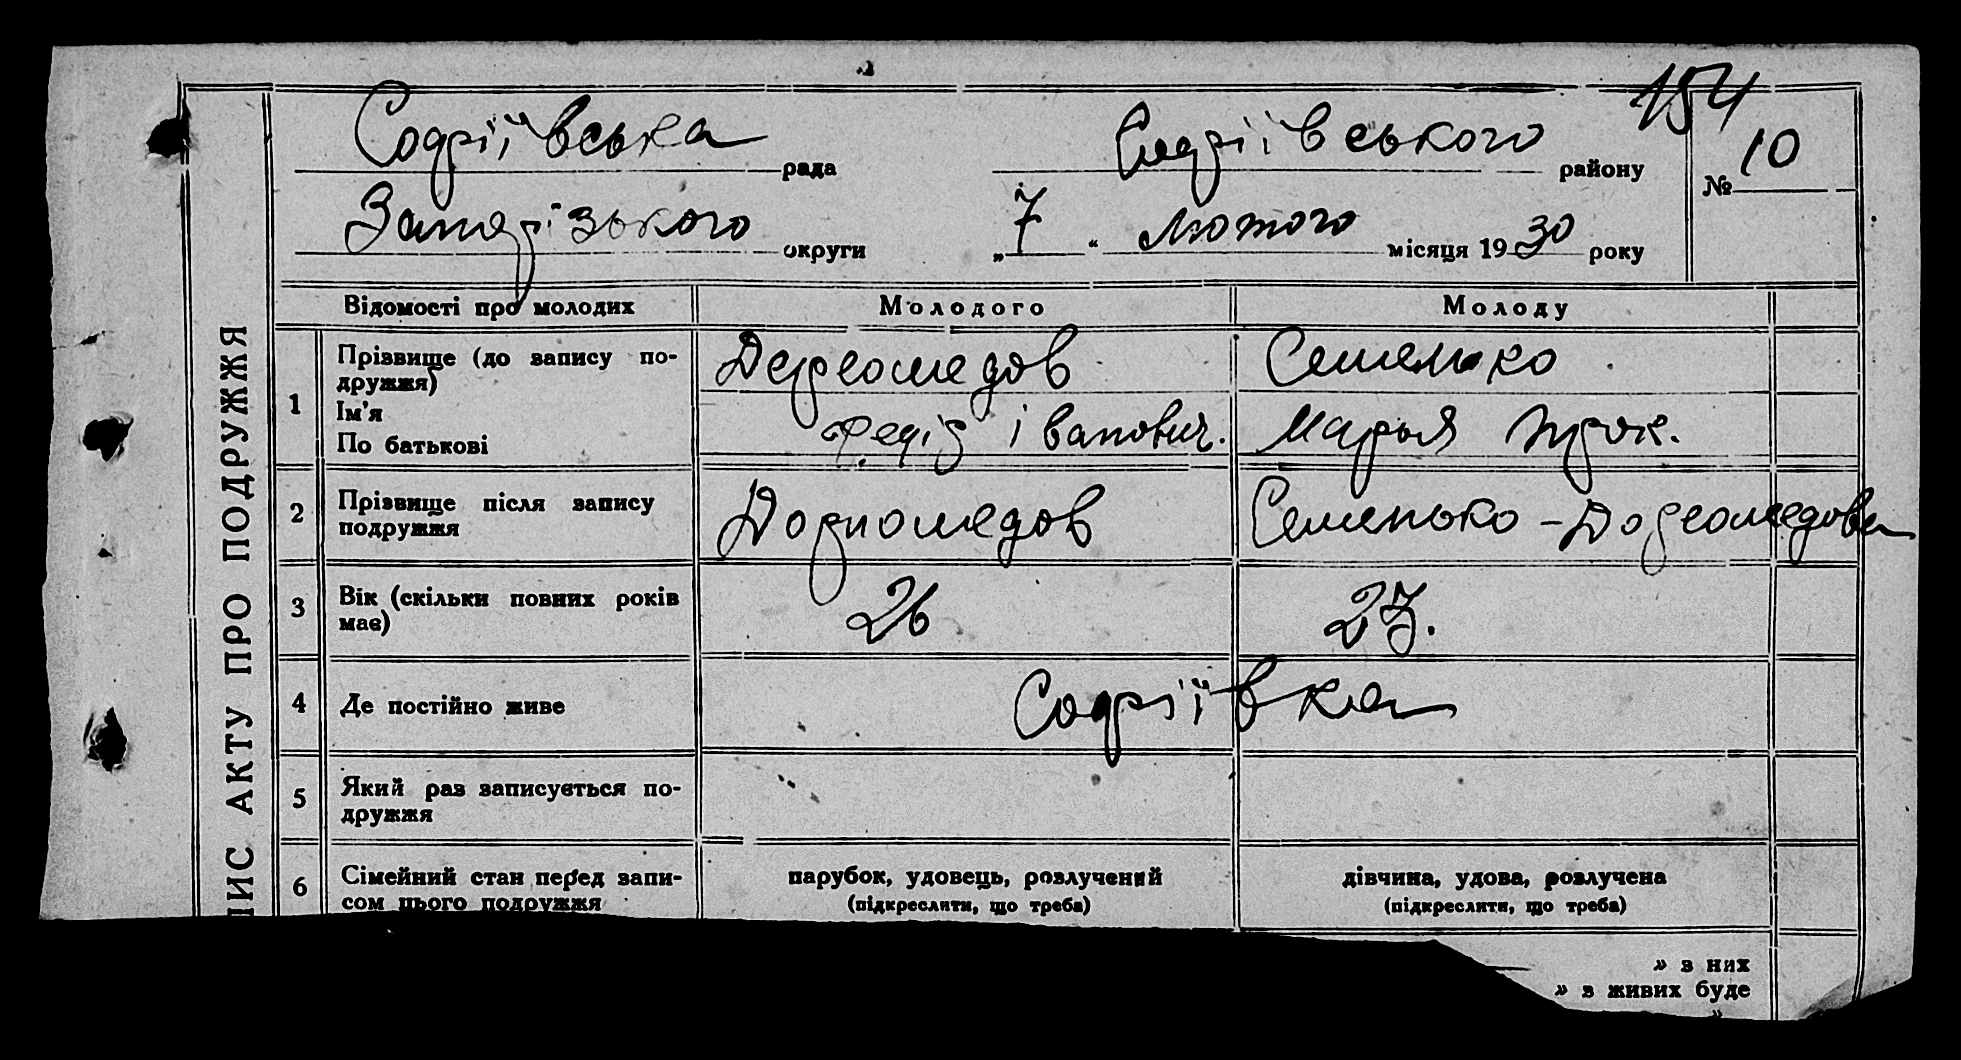 154
Софіївська рада Софіївського району № 10
Запорізького округи „7“ лютого місяця 1930 року
Відомості про молодих Молодого Молоду
ПИС АКТУ ПРО ПОДРУЖЖЯ
1 Прізвище (до запису по-
дружжя) Семенько
Ім'я
По батькові Федір Іванович. Марья Прок.
2 Прізвище після запису
подружжя Семенько –
3 Вік (скільки повних років
має) 26 27.
4 Де постійно живе Софіївка
5 Який раз записується по-
дружжя
6 Сімейний стан перед запи-
сом цього подружжя
парубок, удовець, розлучений
(підкреслити, що треба)
дівчина, удова, розлучена
(підкреслити, що треба)
» з них
» з живих буде
»